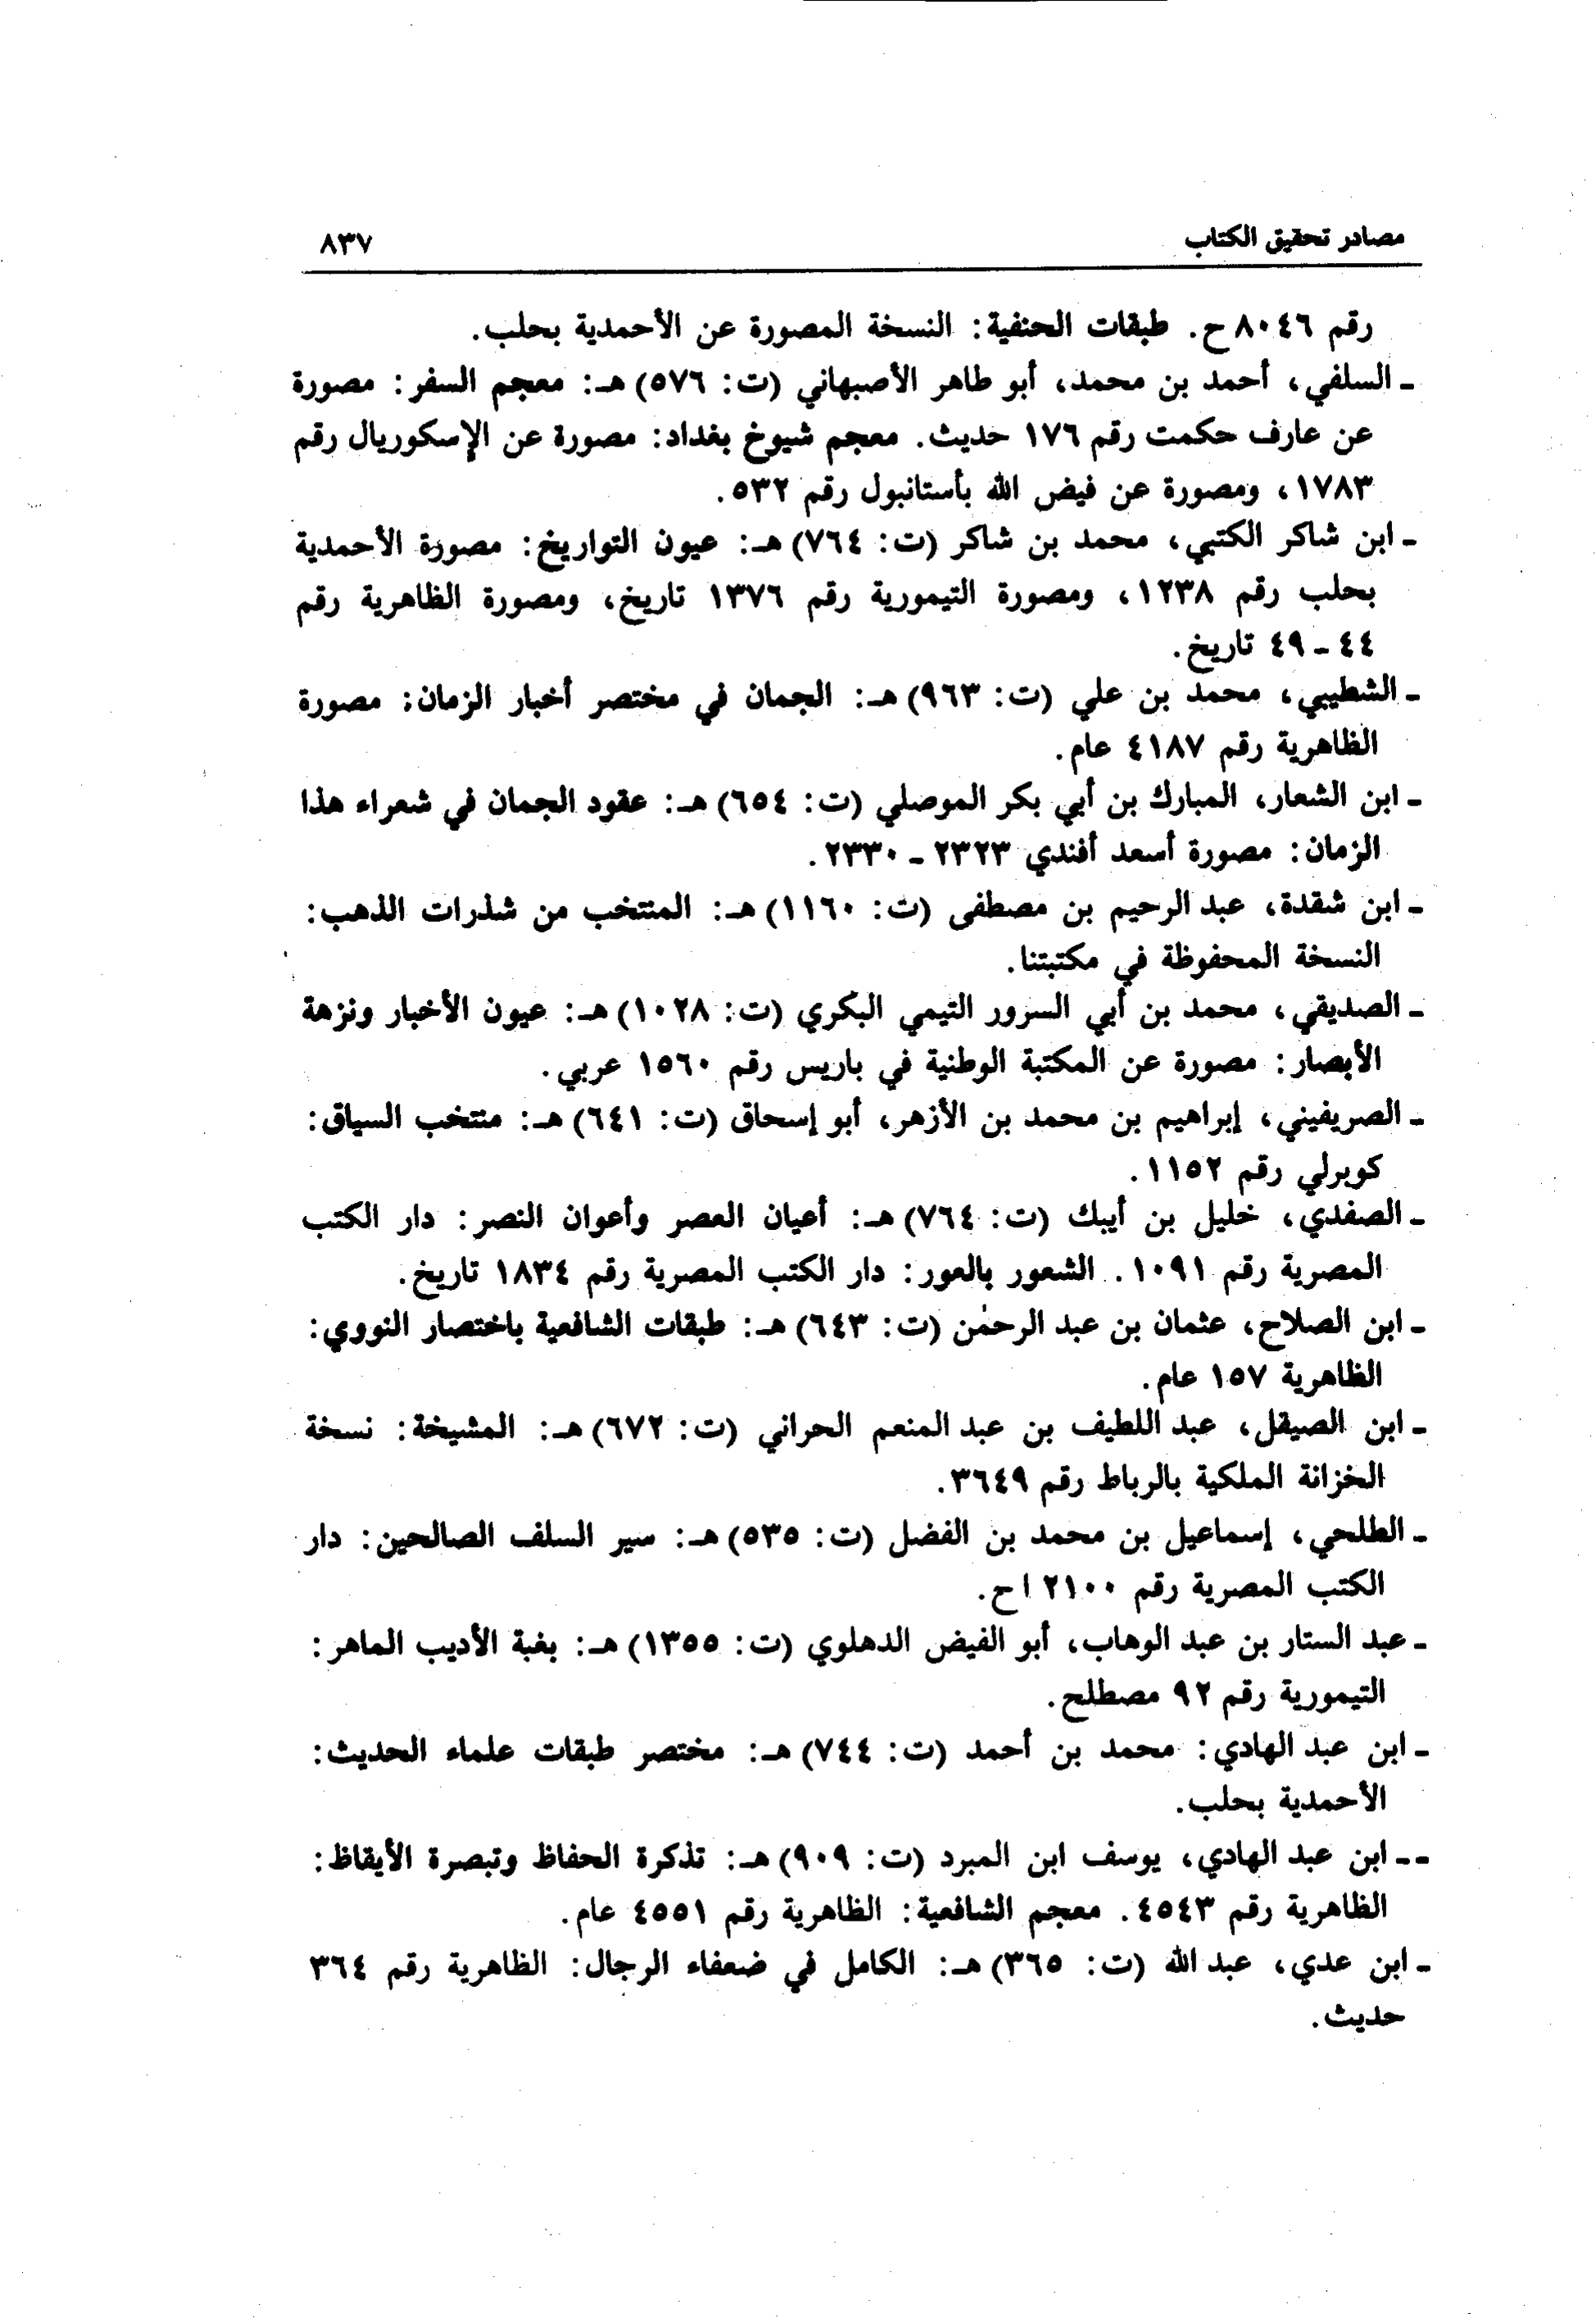 مصادر تحقيق الكتاب ٨٣٧
رقم ٨٠٤٦ ح. طبقات الحنفية: النسخة المصورة عن الأحمدية بحلب.
ـ السلفي، أحمد بن محمد، أبو طاهر الأصبهاني (ت: ٥٧٦) هـ: معجم السفر: مصورة
عن عارف حكمت رقم ١٧٦ حديث. معجم شيوخ بغداد: مصورة عن الإسكوريال رقم
١٧٨٣، ومصورة عن فيض الله بأستانبول رقم ٥٣٢.
ـ ابن شاكر الكتبي، محمد بن شاكر (ت: ٧٦٤) هـ: عيون التواريخ: مصورة الأحمدية
بحلب رقم ١٢٣٨، ومصورة التيمورية رقم ١٣٧٦ تاريخ، ومصورة الظاهرية رقم
٤٤ ـ ٤٩ تاريخ.
ـ الشطيبي، محمد بن علي (ت: ٩٦٣) هـ: الجمان في مختصر أخبار الزمان: مصورة
الظاهرية رقم ٤١٨٧ عام.
ـ ابن الشعار، المبارك بن أبي بكر الموصلي (ت: ٦٥٤) هـ: عقود الجمان في شعراء هذا
الزمان: مصورة أسعد أفندي ٢٣٢٣ ـ ٢٣٣٠.
ـ ابن شقدة، عبد الرحيم بن مصطفى (ت: ١١٦٠) هـ: المنتخب من شذرات الذهب:
النسخة المحفوظة في مكتبتنا.
ـ الصديقي، محمد بن أبي السرور التيمي البكري (ت: ١٠٢٨) هـ: عيون الأخبار ونزهة
الأبصار: مصورة عن المكتبة الوطنية في باريس رقم ١٥٦٠ عربي.
ـ الصريفيني، إبراهيم بن محمد بن الأزهر، أبو إسحاق (ت: ٦٤١) هـ: منتخب السياق:
كوبرلي رقم ١١٥٢.
ـ الصفدي، خليل بن أيبك (ت: ٧٦٤) هـ: أعيان العصر وأعوان النصر: دار الكتب
المصرية رقم ١٠٩١. الشعور بالعور: دار الكتب المصرية رقم ١٨٣٤ تاريخ.
ـ ابن الصلاح، عثمان بن عبد الرحمٰن (ت: ٦٤٣) هـ: طبقات الشافعية باختصار النووي:
الظاهرية ١٥٧ عام.
ـ ابن الصيقل، عبد اللطيف بن عبد المنعم الحراني (ت: ٦٧٢) هـ: المشيخة: نسخة
الخزانة الملكية بالرباط رقم ٣٦٤٩.
ـ الطلحي، إسماعيل بن محمد بن الفضل (ت: ٥٣٥) هـ: سير السلف الصالحين: دار
الكتب المصرية رقم ٢١٠٠ اح.
ـ عبد الستار بن عبد الوهاب، أبو الفيض الدهلوي (ت: ١٣٥٥) هـ: بغبة الأديب الماهر:
التيمورية رقم ٩٢ مصطلح.
ـ ابن عبد الهادي: محمد بن أحمد (ت: ٧٤٤) هـ: مختصر طبقات علماء الحديث:
الأحمدية بحلب.
ـ ـ ابن عبد الهادي، يوسف ابن المبرد (ت: ٩٠٩) هـ: تذكرة الحفاظ وتبصرة الأيقاظ:
الظاهرية رقم ٤٥٤٣. معجم الشافعية: الظاهرية رقم ٤٥٥١ عام.
ـ ابن عدي، عبد الله (ت: ٣٦٥) هـ: الكامل في ضعفاء الرجال: الظاهرية رقم ٣٦٤
حديث.